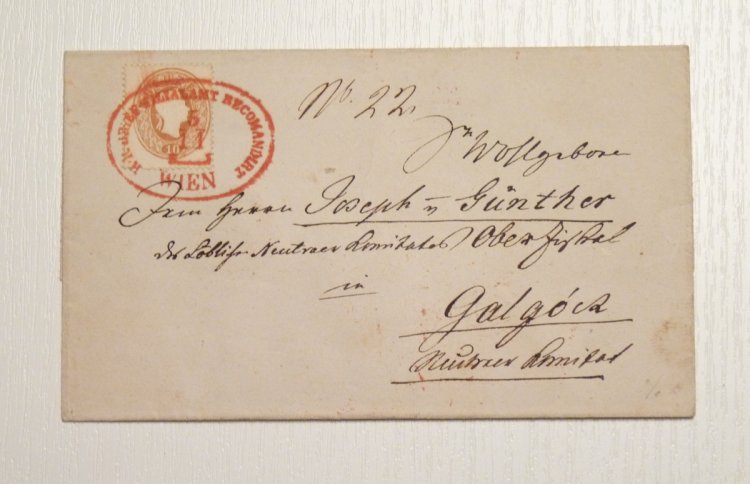 K.K. BRIEF FILIALAMT RECOMANDIRT
5
11
WIEN
10
No. 22.
Sr Wohlgeboren
Dem Herrn Joseph v Günther
des Löbliche Neutraer Komitates Ober Fiskal
in
Galgócz
Neutraer Komitat